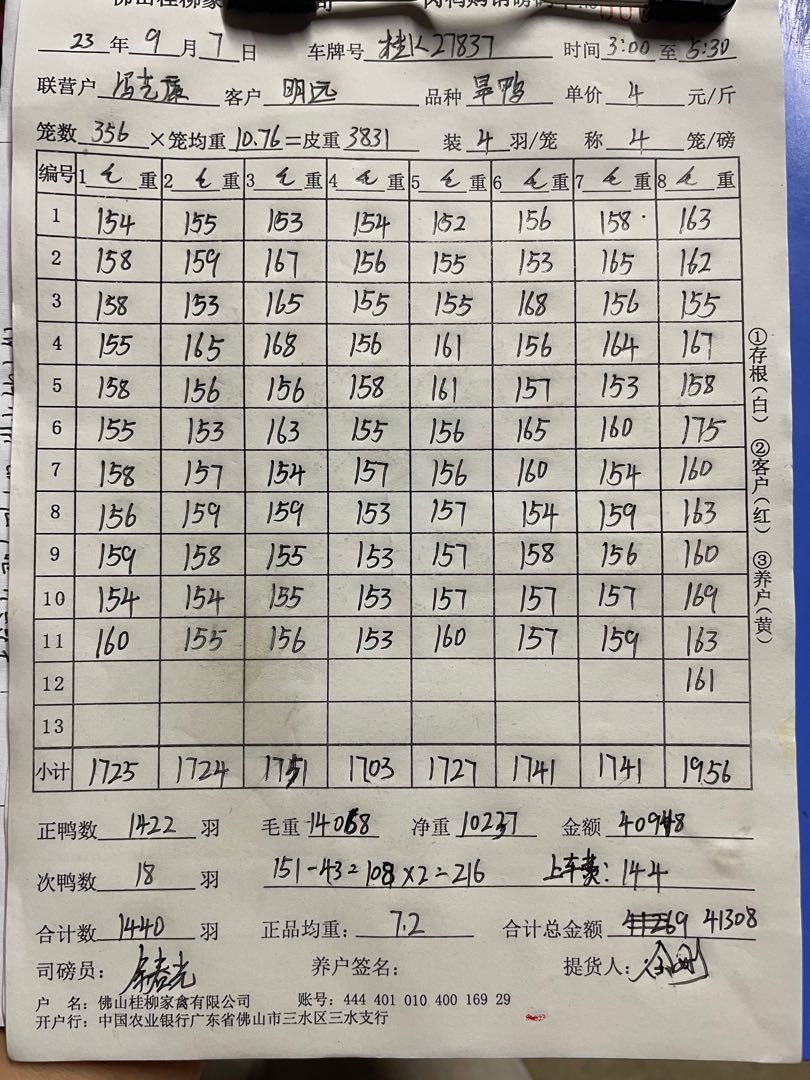 佛山桂柳家
23 年 9 月 7 日 车牌号 桂K27837 时间 3:00 至 5:30
联营户 客户 明远 品种 旱鸭 单价 4 元/斤
笼数 356 ×笼均重 10.76 =皮重 3831 装 4 羽/笼 称 4 笼/磅
编号 1 毛 重 2 毛 重 3 毛 重 4 毛 重 5 毛 重 6 毛 重 7 毛 重 8 毛 重
1 154 155 153 154 152 156 158 163
2 158 159 167 156 155 153 165 162
3 158 153 165 155 155 168 156 155
4 155 165 168 156 161 156 164 167
5 158 156 156 158 161 157 153 158
6 155 153 163 155 156 165 160 175
7 158 157 154 157 156 160 154 160
8 156 159 159 153 157 154 159 163
9 159 158 155 153 157 158 156 160
10 154 154 155 153 157 157 157 169
11 160 155 156 153 160 157 159 163
12 161
13
小计 1725 1724 1751 1703 1727 1741 1741 1956
正鸭数 1422 羽 毛重 14068 净重 10237 金额 40948
次鸭数 18 羽 151-43=108×2=216 上车费: 144
合计数 1440 羽 正品均重: 7.2 合计总金额 41308
司磅员: 养户签名: 提货人:
户 名: 佛山桂柳家禽有限公司 账号: 444 401 010 400 169 29
开户行: 中国农业银行广东省佛山市三水区三水支行
①存根(白) ②客户(红) ③养户(黄)